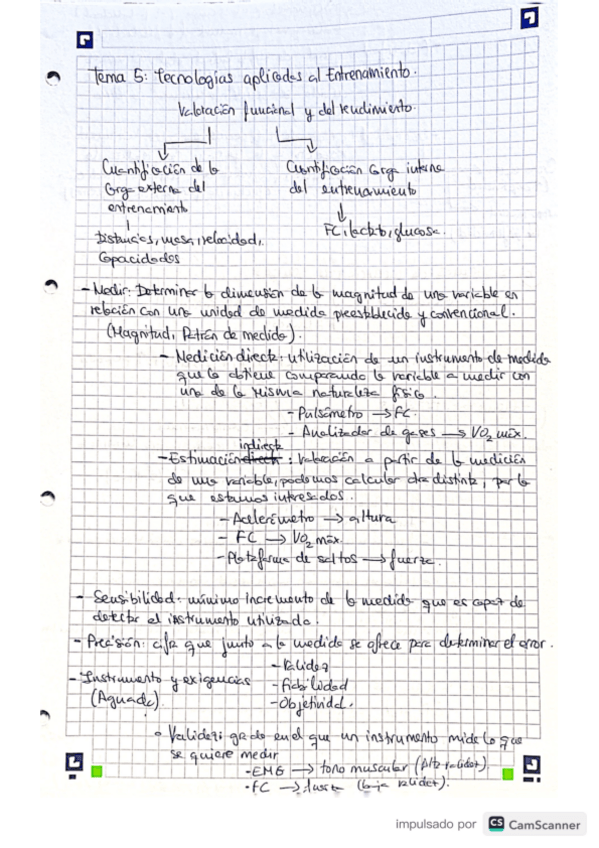 Tema 5: Tecnologias aplicadas al Entrenamiento.
Valoración funcional y del rendimiento.
Cuantificación de la
carga externa del
entrenamiento
Cuantificación carga interna
del entrenamiento
Distancias, masa, velocidad,
Capacidades
FC, lactato, glucosa.
- Medir: Determinar la dimensión de la magnitud de una variable en
relación con una unidad de medida preestablecida y convencional.
(Magnitud, Patrón de medida).
- Medición directa: utilización de un instrumento de medida
que la obtiene comparando la variable a medir con
una de la misma naturaleza física.
- Pulsómetro → FC.
- Analizador de gases → VO2 máx.
indirecta
- Estimación directa: valoración a partir de la medición
de una variable, podemos calcular otra distinta, por la
que estamos interesados.
- Acelerómetro → altura
- FC → VO2 máx.
- Plataforma de saltos → fuerza.
- Sensibilidad: mínimo incremento de la medida que es capaz de
detectar el instrumento utilizado.
- Precisión: cifra que junto a la medida se ofrece para determinar el error.
- Instrumento y exigencias
(Aguado).
- Validez
- Fiabilidad
- Objetividad.
• Validez: grado en el que un instrumento mide lo que
se quiere medir
- EMG → tono muscular (Alta validez).
- FC → (baja validez).
impulsado por CS CamScanner